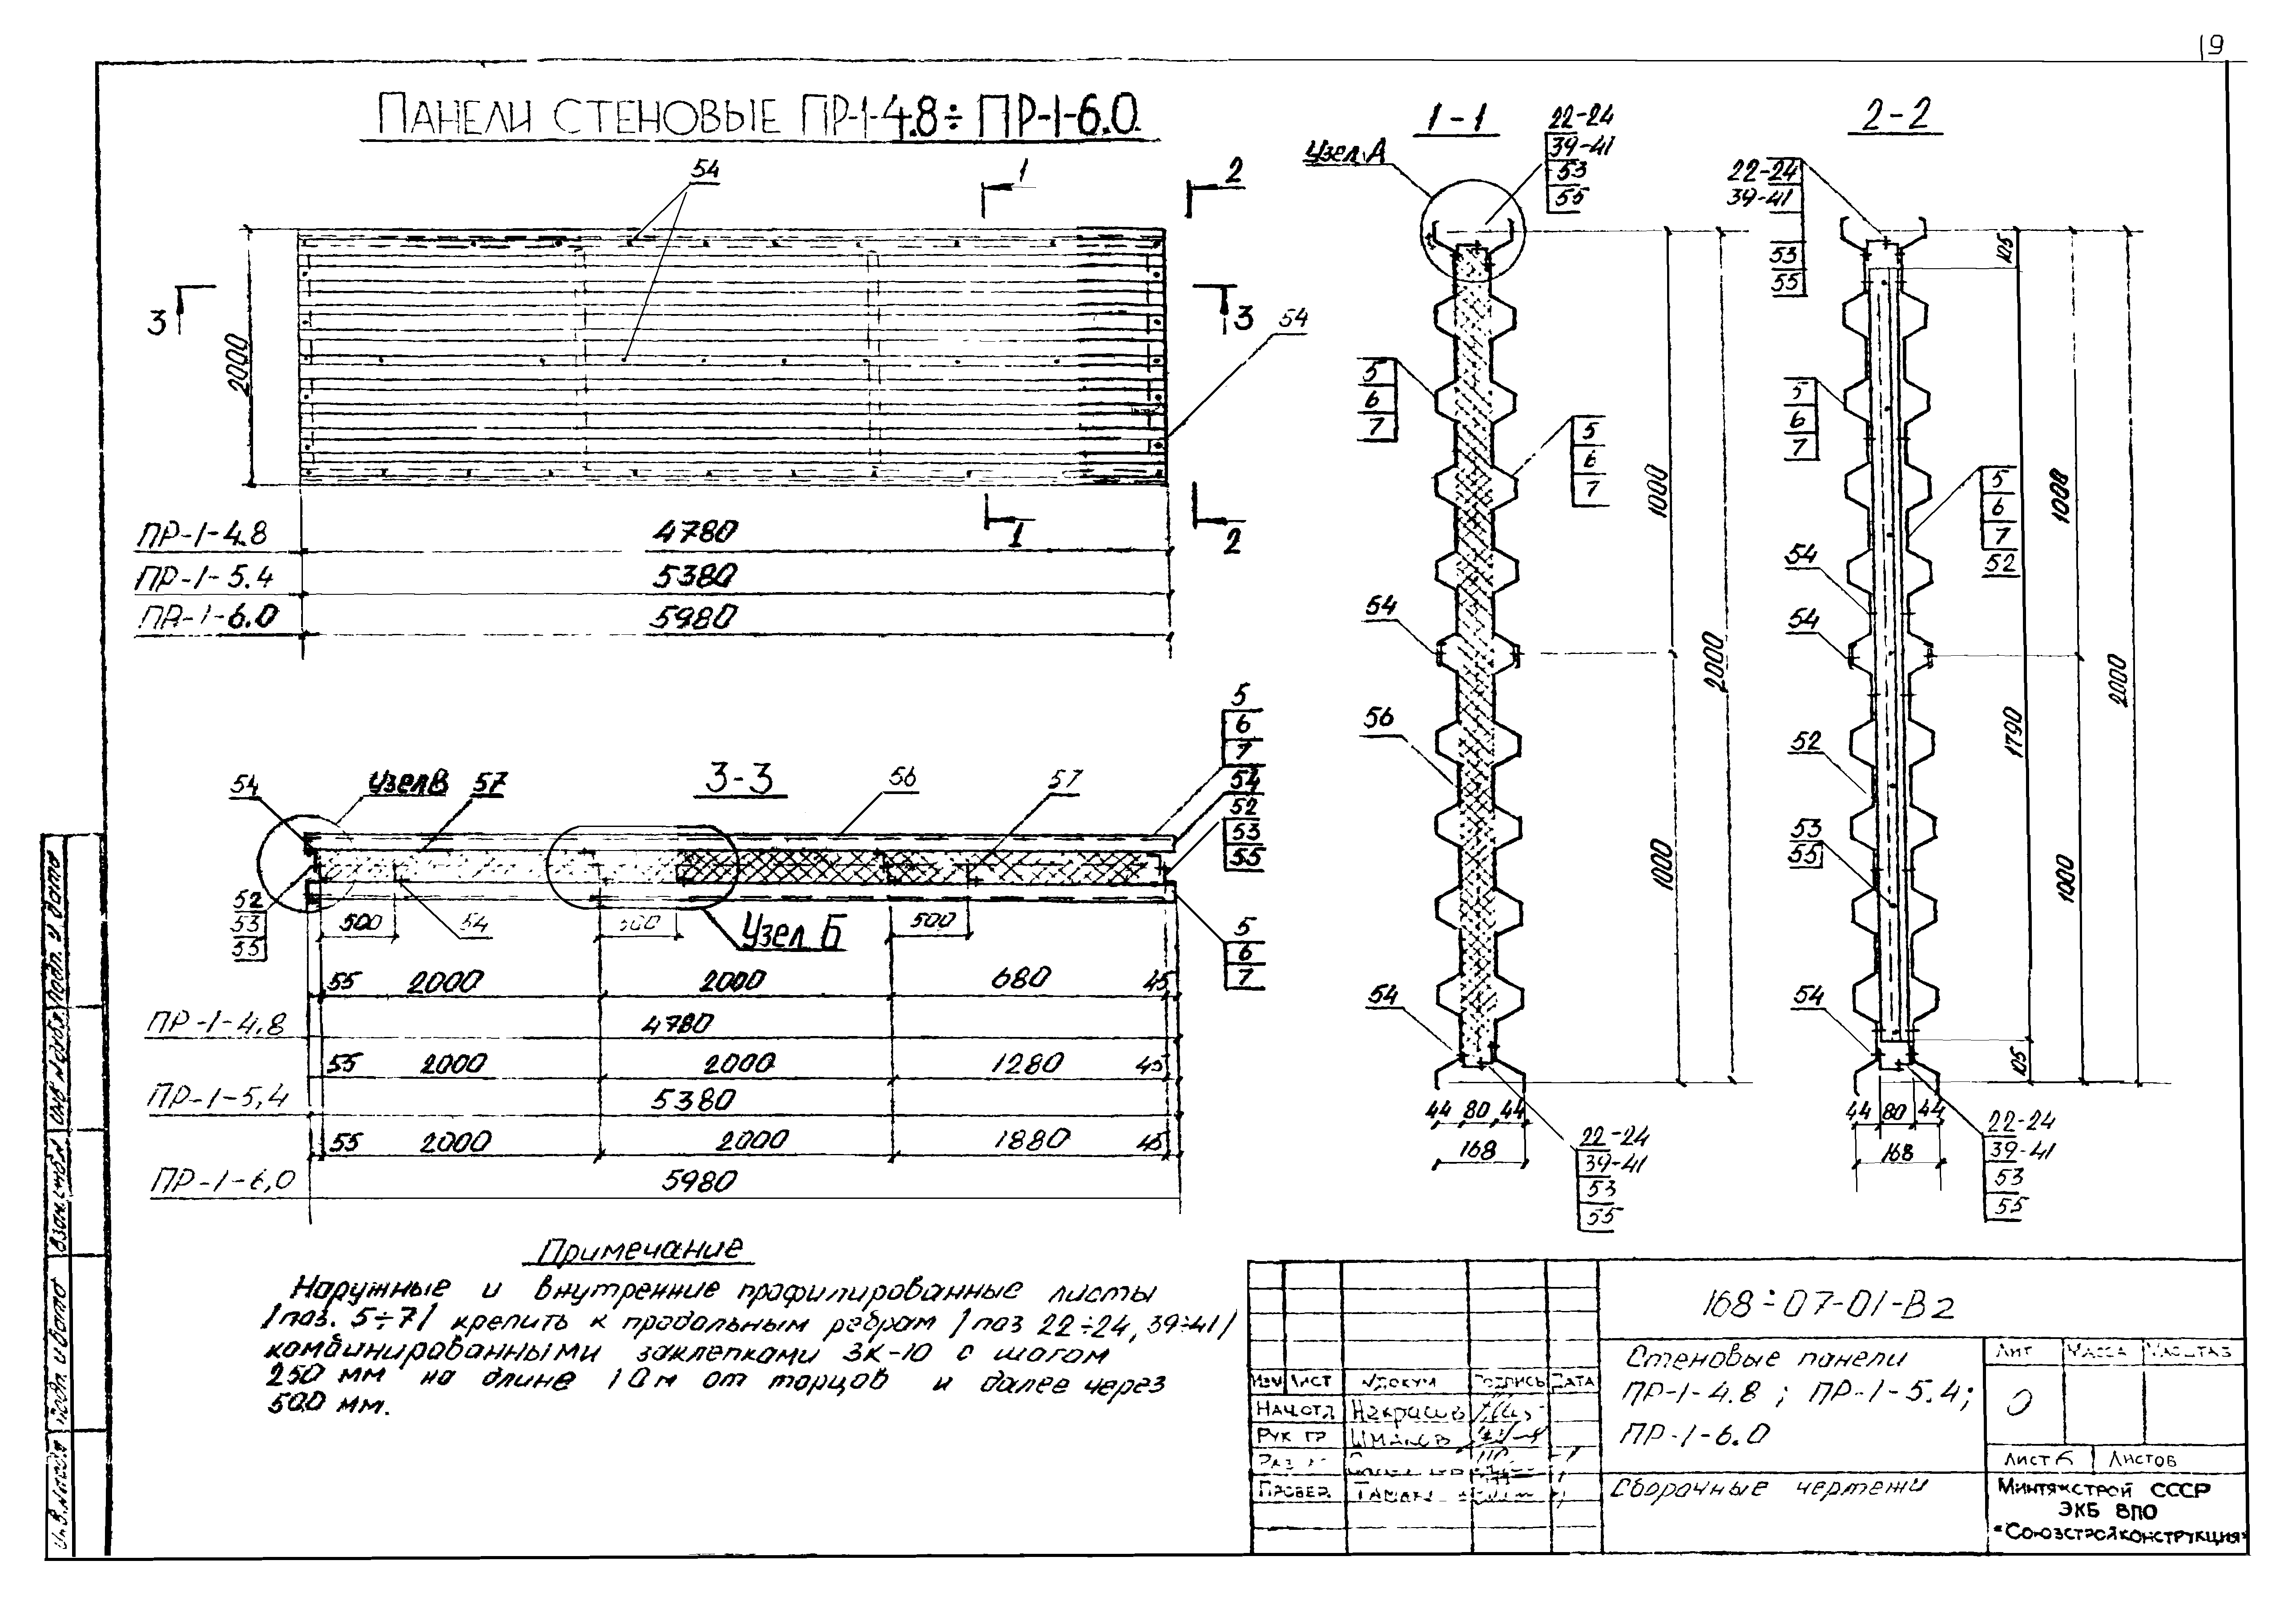 19
ПАНЕЛИ СТЕНОВЫЕ ПР-1-4.8÷ ПР-1-6.0
54
1
2
3
2000
3
54
1
2
ПР-1-4.8
4780
ПР-1-5.4
5380
ПР-1-6.0
5980
1-1
Узел А
22-24
39-41
53
55
5
6
7
5
6
7
54
56
54
1000
2000
1000
44 80 44
168
22-24
39-41
53
55
2-2
22-24
39-41
53
55
5
6
7
5
6
7
52
54
54
52
53
55
54
105
1000
1790
2000
1000
105
44 80 44
168
22-24
39-41
53
55
3-3
54
Узел В
57
56
57
5
6
7
54
52
53
55
52
53
55
500
54
500
Узел Б
500
5
6
7
55 2000 2000 680 45
ПР-1-4,8
4780
55 2000 2000 1280 45
ПР-1-5,4
5380
55 2000 2000 1880 45
ПР-1-6,0
5980
Примечание
Наружные и внутренние профилированные листы
/поз. 5÷7/ крепить к продольным ребрам /поз 22÷24, 39÷41/
комбинированными заклепками ЗК-10 с шагом
250 мм на длине 1,0м от торцов и далее через
500 мм.
168÷07-01-В2
Стеновые панели
ПР-1-4.8 ; ПР-1-5.4;
ПР-1-6.0
Сборочные чертежи
Лит Масса Масштаб
О
Лист 6 Листов
Минтяжстрой СССР
ЭКБ ВПО
"Союзстройконструкция"
Изм Лист №докум Подпись Дата
Нач.отд Некрасов
Рук гр
Провер.
Инв.№подл Подп. и дата Взам.инв№ Инв №дубл Подп. и дата